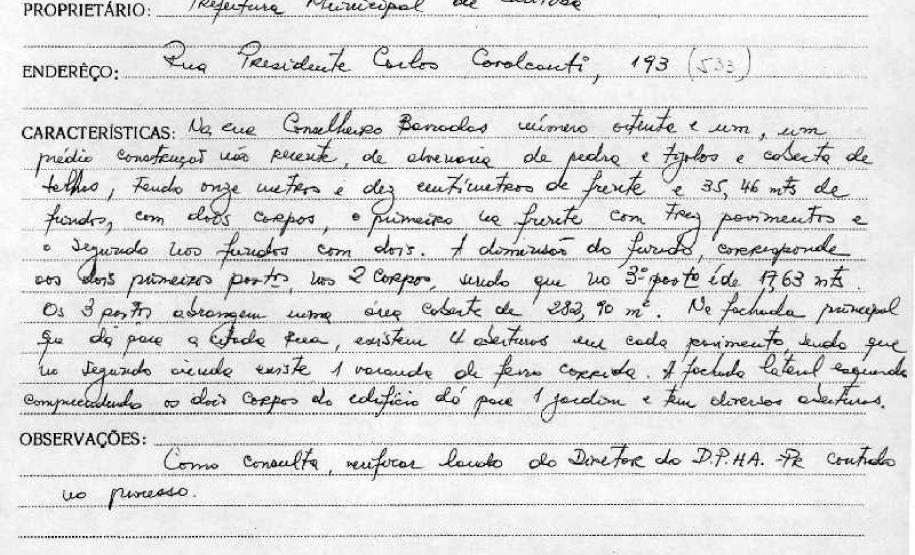 PROPRIETÁRIO: Prefeitura Municipal de
ENDERÊÇO: Rua Presidente Carlos Cavalcanti, 193 (533)
CARACTERÍSTICAS: Na rua Conselheiro Barradas número oitenta e um, um
prédio construçaõ não recente, de alvenaria de pedra e tijolos e coberta de
telhas, tendo onze metros e dez centimetros de frente e 35,46 mts de
fundos, com dois corpos, o primeiro na frente com trez pavimentos e
o segundo nos fundos com dois. A dimensão do fundo, corresponde
aos dois primeiros pavtos nos 2 corpos, sendo que no 3º pavto é de 17,63 mts.
Os 3 pavtos abrangem uma área coberta de 282,90 m². Na fachada principal
que dá para a citada rua, existem 4 aberturas em cada pavimento, sendo que
no segundo ainda existe 1 varanda de ferro corrida. A fachada lateral esquerda
compreendendo os dois corpos do edifício dá para 1 jardim e tem diversas aberturas.
OBSERVAÇÕES:
Como consulta, verificar laudo do Diretor do D.P.H.A.-PR contido
no processo.